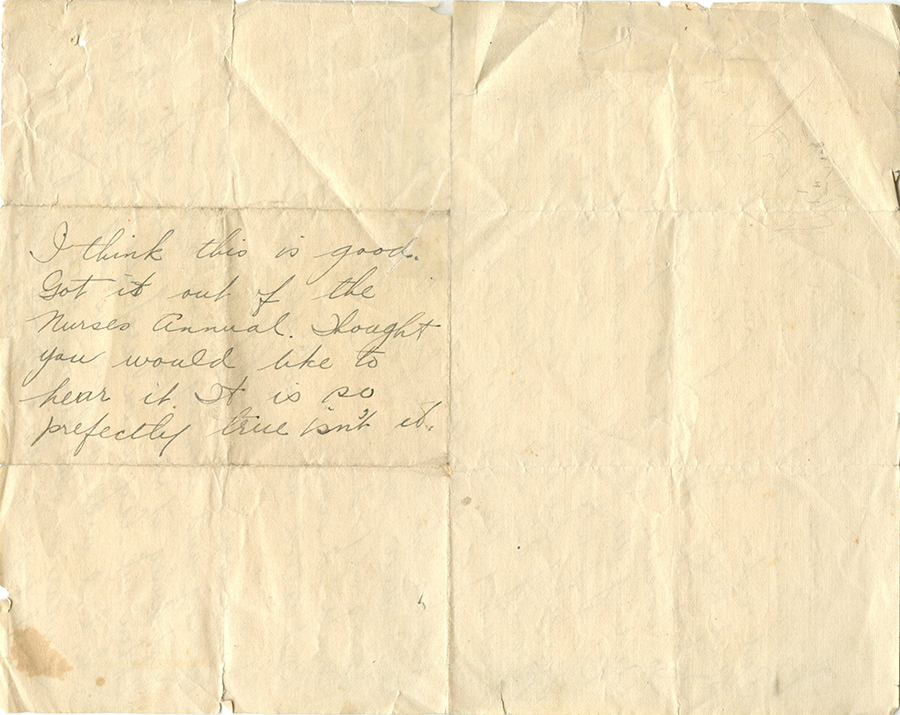 I think this is good.
Got it out of the
Nurses Annual. Thought
you would like to
hear it It is so
prefectly true isn't it.